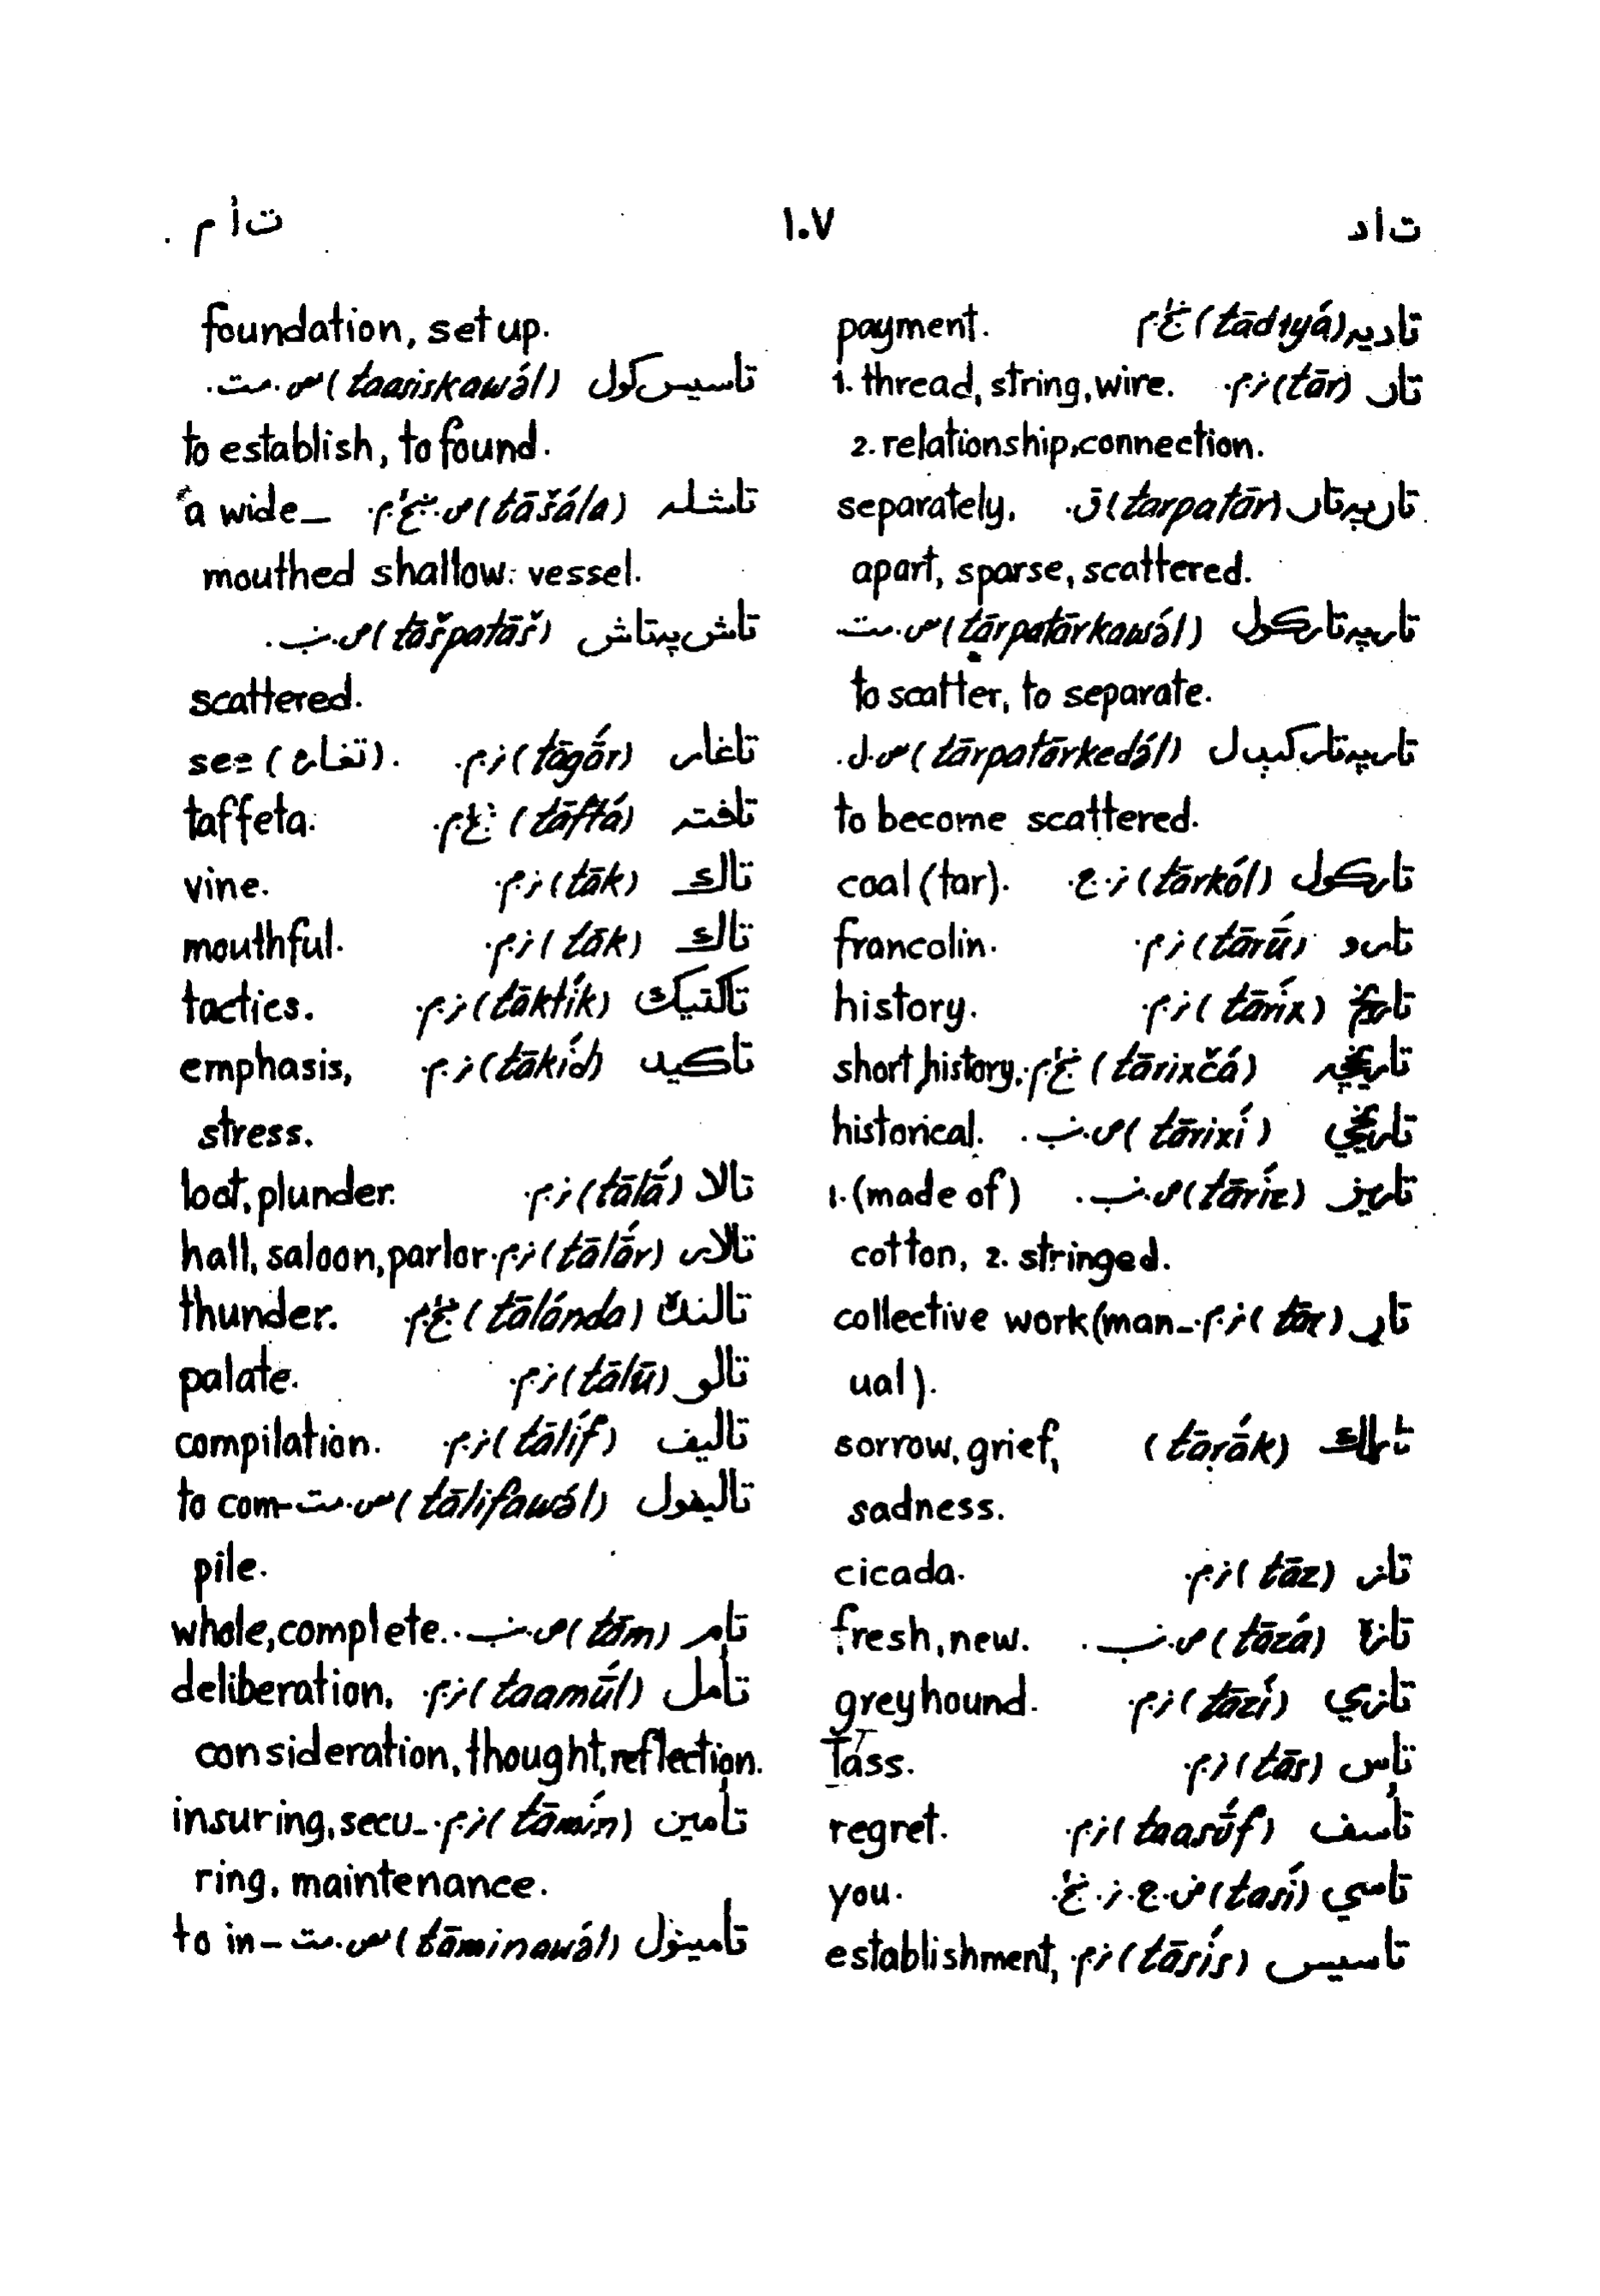 تاد ١٠٧ تأم
تاديه (tādiyá) ښځ.م payment.
تار (tār) نر.م. 1. thread, string, wire.
2. relationship, connection.
تارپه تار (tārpatār) ق. separately,
apart, sparse, scattered.
تارپه تارکول (tārpatārkawə́l) مص.مت.
to scatter, to separate.
تارپه تارکېدل (tārpatārkedə́l) مص.ل.
to become scattered.
تارکول (tārkól) نر.ج. coal (tar).
تارو (tārū́) نر.م. francolin.
تاريخ (tāríx) نر.م. history.
تاريخچه (tārixčá) ښځ.م. short history.
تاريخي (tārixí) ص.نب. historical.
تاريز (tāríz) ص.نب. 1. (made of)
cotton, 2. stringed.
(tār) نر.م. collective work (man-
ual).
تاړاک (tāṛā́k) sorrow, grief,
sadness.
تاز (tāz) نر.م. cicada.
تازه (tāzá) ص.نب. fresh, new.
تازي (tāzí) نر.م. greyhound.
تاس (tās) نر.م. Tass.
تأسف (taasúf) نر.م. regret.
تاسي (tasí) ض.ج.نر.ښځ. you.
تاسيس (tāsís) نر.م. establishment,
foundation, set up.
تاسيس کول (taasiskawə́l) مص.مت.
to establish, to found.
تاشله (tāšála) ص.ښځ.م. a wide-
mouthed shallow vessel.
تاش په تاش (tāšpatāš) ص.نب.
scattered.
تاغار (tāgā́r) نر.م. see (تغار).
تافته (tāftá) ښځ.م. taffeta.
تاک (tāk) نر.م. vine.
تاک (tāk) نر.م. mouthful.
تاکتيک (tāktík) نر.م. tactics.
تاکيد (tākíd) نر.م. emphasis,
stress.
تالا (tālā́) نر.م. loot, plunder.
تالار (tālā́r) نر.م. hall, saloon, parlor.
تالنده (tālánda) ښځ.م thunder.
تالو (tālū) نر.م. palate.
تاليف (tālíf) نر.م. compilation.
تاليفول (tālifawə́l) مص.مت. to com-
pile.
تام (tām) ص.نب. whole, complete.
تأمل (taamúl) نر.م. deliberation,
consideration, thought, reflection.
تأمين (tāmín) نر.م. insuring, secu-
ring, maintenance.
تأمينول (tāminawə́l) مص.مت. to in-